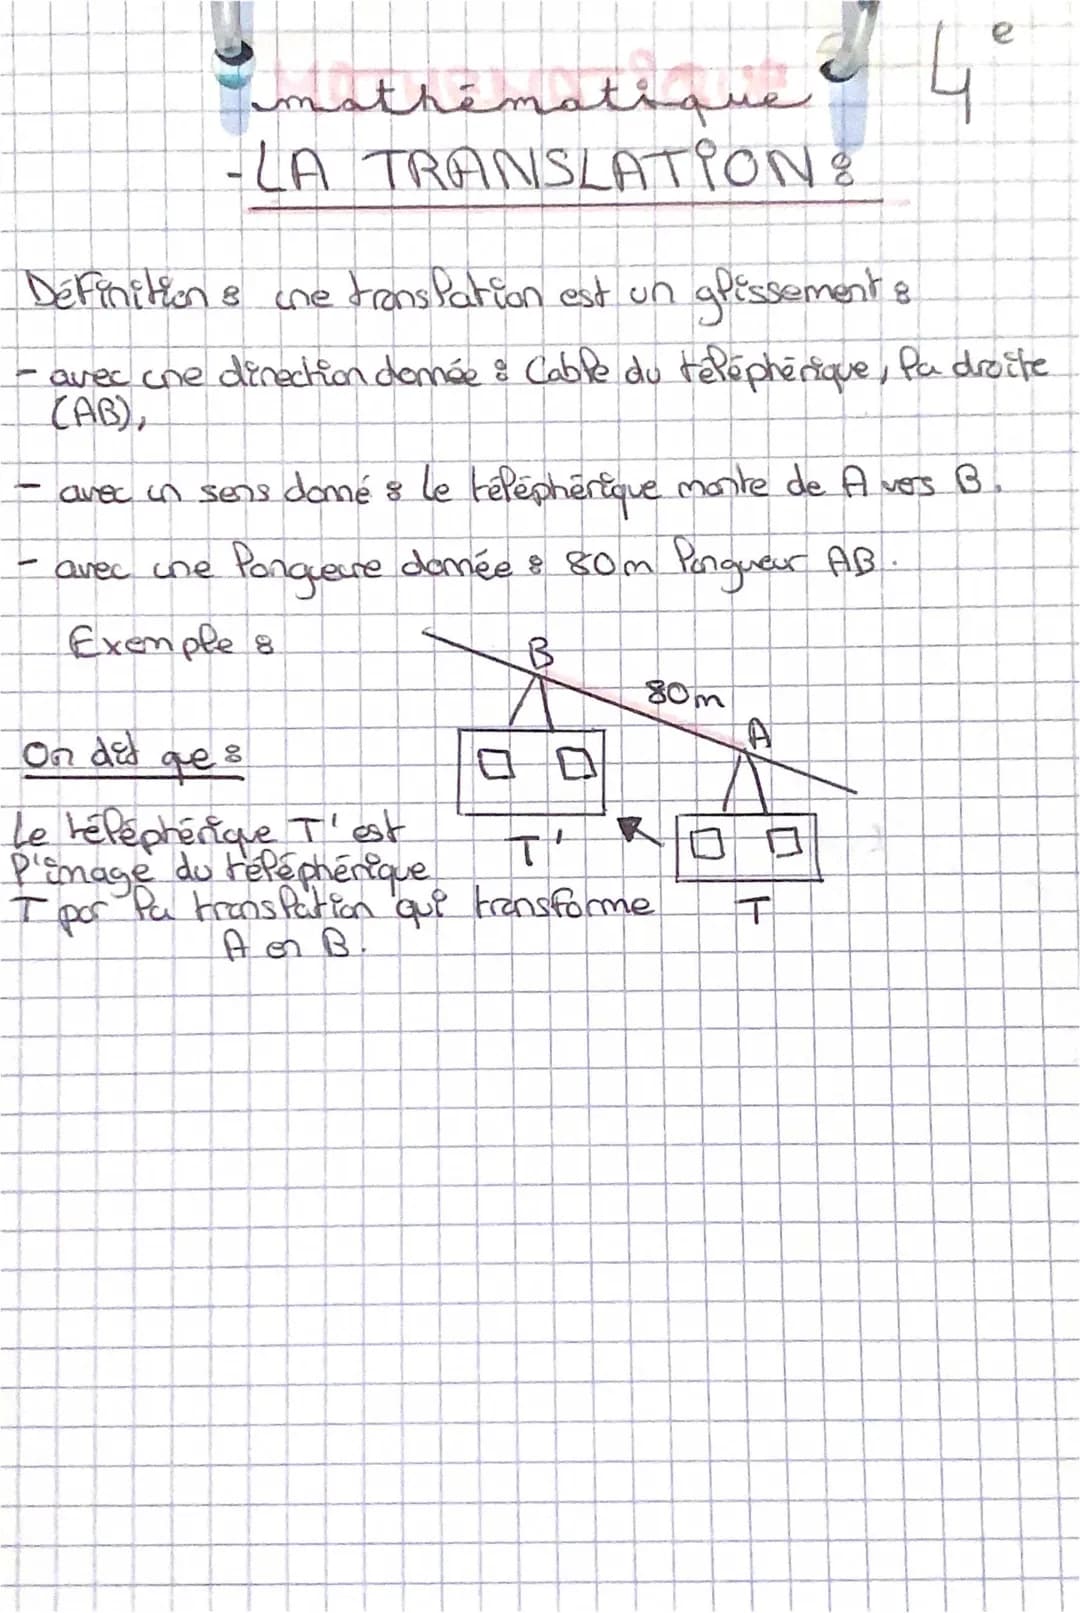 4e
mathématique
-LA TRANSLATION :
Définition : une translation est un glissement :
- avec une direction donnée : Cable du téléphérique, la droite
(AB),
- avec un sens donné : le téléphérique monte de A vers B.
- avec une longueure donnée : 80m longueur AB.
Exemple :
B
80m
A
On dit que :
Le téléphérique T' est
l'image du téléphérique
T par la translation qui transforme
A en B.
T'
T